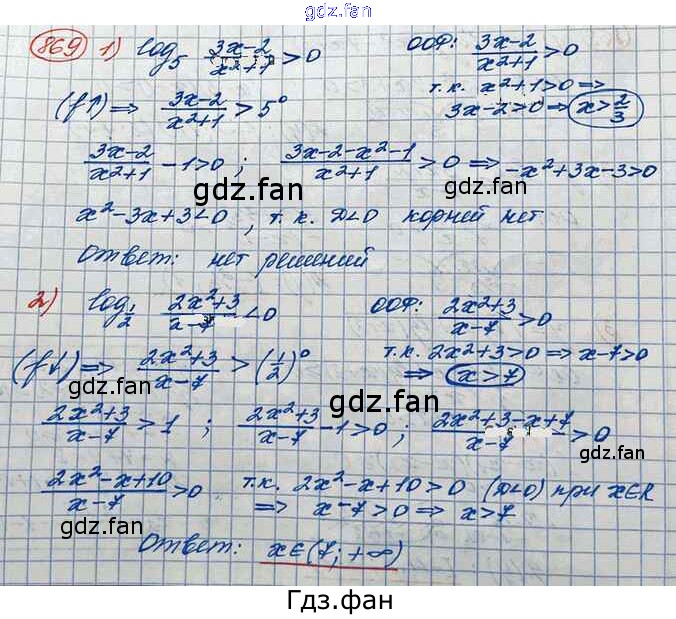 gdz.fan
869 1) log₅ (3x-2)/(x²+1) > 0 ООФ: (3x-2)/(x²+1) > 0
т.к. x²+1>0 ⇒
(f↑) ⇒ (3x-2)/(x²+1) > 5⁰ 3x-2>0 ⇒ x>2/3
(3x-2)/(x²+1) - 1>0 ; (3x-2-x²-1)/(x²+1) > 0 ⇒ -x²+3x-3>0
gdz.fan gdz.fan
x²-3x+3<0 , т.к. D<0 корней нет
Ответ: нет решений
gdz.fan
2) log_{1/2} (2x²+3)/(x-7) < 0 ООФ: (2x²+3)/(x-7) > 0
т.к. 2x²+3>0 ⇒ x-7>0
(f↓) ⇒ (2x²+3)/(x-7) > (1/2)⁰ ⇒ x>7
gdz.fan gdz.fan
(2x²+3)/(x-7) > 1 ; (2x²+3)/(x-7) - 1>0 ; (2x²+3-x+7)/(x-7) > 0
(2x²-x+10)/(x-7) > 0 т.к. 2x²-x+10>0 (D<0) при x∈R
⇒ x-7>0 ⇒ x>7
gdz.fan
Ответ: x∈(7; +∞)
gdz.fan
Гдз.фан